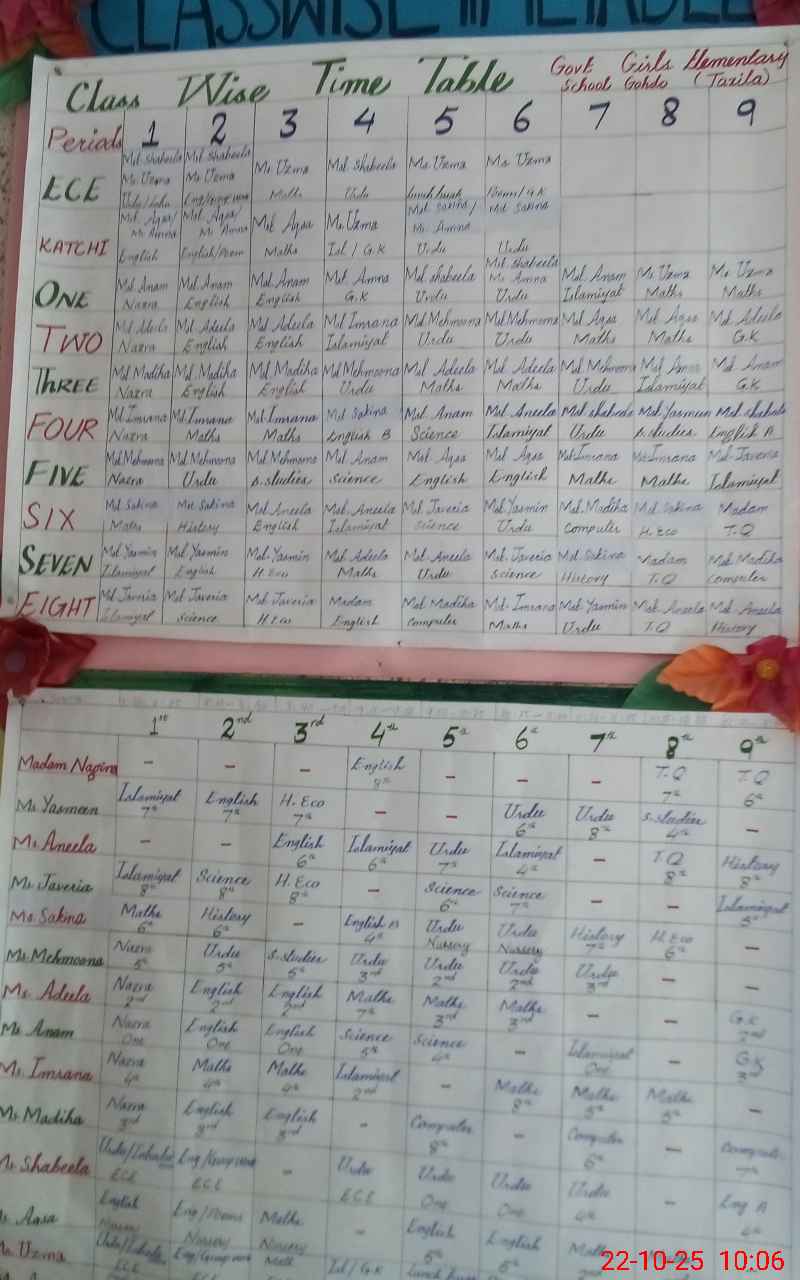 CLASSWISE TIMETABLE
Class Wise Time Table Govt Girls Elementary
School Gohdo (Taxila)
Periods 1 2 3 4 5 6 7 8 9
ECE Mrd. Shabeela Mrd. Shabeela Ms. Uzma Md. Shabeela Ms. Uzma Ms. Uzma
Ms. Uzma Ms. Uzma
Maths Urdu Lunch break Poems/G.K
KATCHI Md. Aqsa/ Md. Aqsa/ Md. Aqsa Ms. Uzma Md. Sakina/ Md. Sakina
Ms. Amna Ms. Amna Ms. Amna
English English/Poem Maths Isl / G.K Urdu Urdu
ONE Md. Anam Md. Anam Md. Anam Md. Amna Md. Shabeela Md. Shabeela Md. Anam Ms. Uzma Ms. Uzma
Ms. Amna
Nazra English English G.K Urdu Urdu Islamiyat Maths Maths
TWO Md. Adeela Md. Adeela Md. Adeela Md Imrana Md. Mehmoona Md. Mehmoona Md. Aqsa Md. Aqsa Md. Adeela
Nazra English English Islamiyat Urdu Urdu Maths Maths G.K
THREE Md. Madiha Md. Madiha Md. Madiha Md Mehmoona Md. Adeela Md. Adeela Md. Mehmoona Md. Amna Md. Anam
Nazra English English Urdu Maths Maths Urdu Islamiyat G.K
FOUR Md Imrana Md Imrana Md Imrana Md Sakina Md. Anam Md. Aneela Md. Shabeela Md. Yasmeen Md. Shabeela
Nazra Maths Maths English B Science Islamiyat Urdu S.studies English A
FIVE Md. Mehmoona Md. Mehmoona Md. Mehmoona Md. Anam Md. Aqsa Md. Aqsa Md. Imrana Md. Imrana Md. Javeria
Nazra Urdu S.studies Science English English Maths Maths Islamiyat
SIX Md. Sakina Md. Sakina Md. Aneela Md. Aneela Md. Javeria Md. Yasmin Md. Madiha Md. Sakina Madam
Maths History English Islamiyat Science Urdu Computer H.Eco T.Q
SEVEN Md. Yasmin Md. Yasmin Md. Yasmin Md. Adeela Md. Aneela Md. Javeria Md. Sakina Madam Md. Madiha
Islamiyat English H.Eco Maths Urdu Science History T.Q Computer
EIGHT Md. Javeria Md. Javeria Md. Javeria Madam Md. Madiha Md. Imrana Md. Yasmin Md. Aneela Md. Aneela
Islamiyat Science H.Eco English Computer Maths Urdu T.Q History
1st 2nd 3rd 4th 5th 6th 7th 8th 9th
Madam Nagina - - - English - - - T.Q T.Q
8th 7th 6th
Ms. Yasmeen Islamiyat English H.Eco - - Urdu Urdu S.studies -
7th 7th 7th 6th 8th 4th
Ms. Aneela - - English Islamiyat Urdu Islamiyat - T.Q History
6th 6th 7th 4th 8th 8th
Ms. Javeria Islamiyat Science H.Eco - Science Science - - Islamiyat
8th 8th 8th 6th 7th 5th
Ms. Sakina Maths History - English B Urdu Urdu History H.Eco -
6th 6th 4th Nursery Nursery 7th 6th
Ms. Mehmoona Nazra Urdu S.studies Urdu Urdu Urdu Urdu - -
5th 5th 5th 3rd 2nd 2nd 3rd
Ms. Adeela Nazra English English Maths Maths Maths - - G.K
2nd 2nd 2nd 7th 3rd 3rd 2nd
Ms. Anam Nazra English English Science Science - Islamiyat - G.K
One One One 5th 4th One 3rd
Ms. Imrana Nazra Maths Maths Islamiyat - Maths Maths Maths -
4th 4th 4th 2nd 8th 5th 5th
Ms. Madiha Nazra English English - Computer - Computer - Computer
3rd 3rd 3rd 8th 6th 7th
Ms Shabeela Eng/Group work - Urdu Urdu Urdu Urdu - Eng A
ECE ECE ECE One One 4th 4th
Ms. Aqsa English Eng/Poems Maths English English Maths
Nursery Nursery Nursery 5th 5th
Ms. Uzma Eng/Group work Math Isl / G.K Lunch Break
22-10-25 10:06